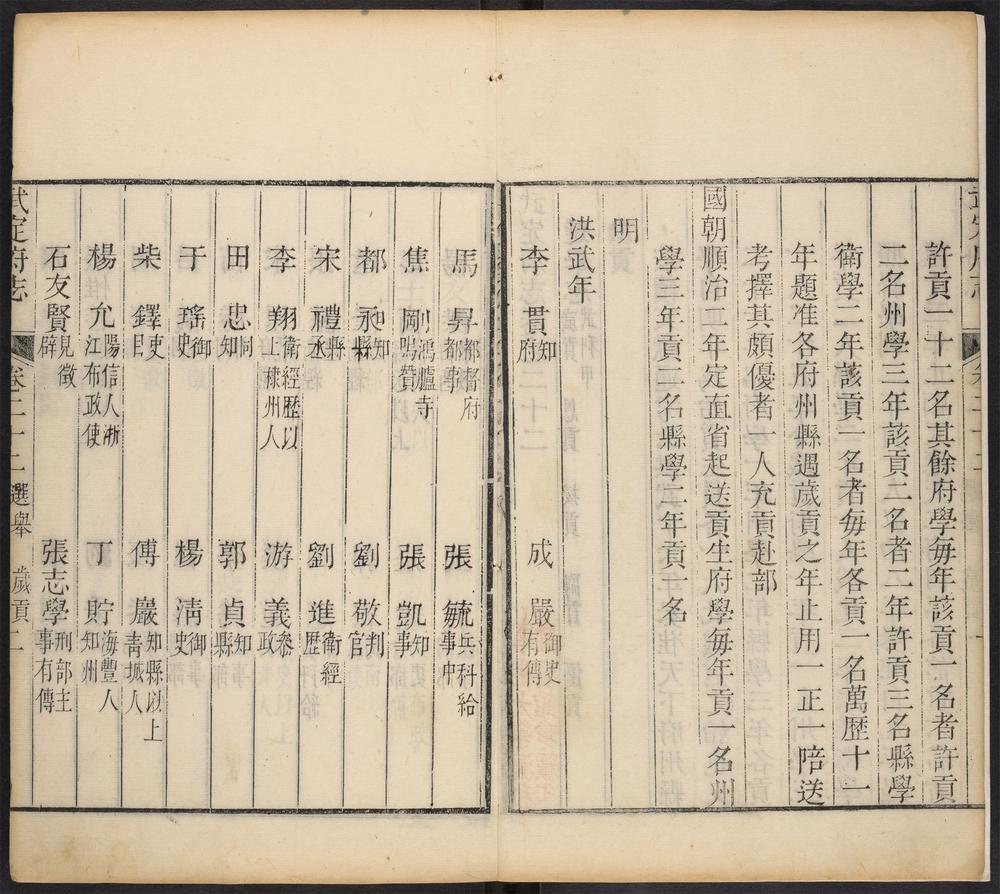 許貢一十二名其餘府學每年該貢一名者許貢
二名州學三年該貢二名者二年許貢三名縣學
衛學二年該貢一名者每年各貢一名萬歷十一
年題准各府州縣遇歲貢之年止用一正一陪送
考擇其頗優者一人充貢赴部
國朝順治二年定直省起送貢生府學每年貢一名州
學三年貢二名縣學二年貢一名
明
洪武年
李貫知府 成嚴御史有傳
馬昇都督府都事 張毓兵科給事中
焦剛鴻臚寺鳴贊 張凱知事
都昶知縣 劉敬判官
宋禮縣丞 劉進衛經歷
李翔衛經歷以上棣州人 游義參政
田忠同知 郭貞知縣
于瑤御史 楊清御史
柴鐸吏目 傅巖知縣以上青城人
楊允陽信人浙江布政使 丁貯海豐人知州
石友賢見徵辟 張志學刑部主事有傳
武定府志 卷二十二 選舉 歲貢 二